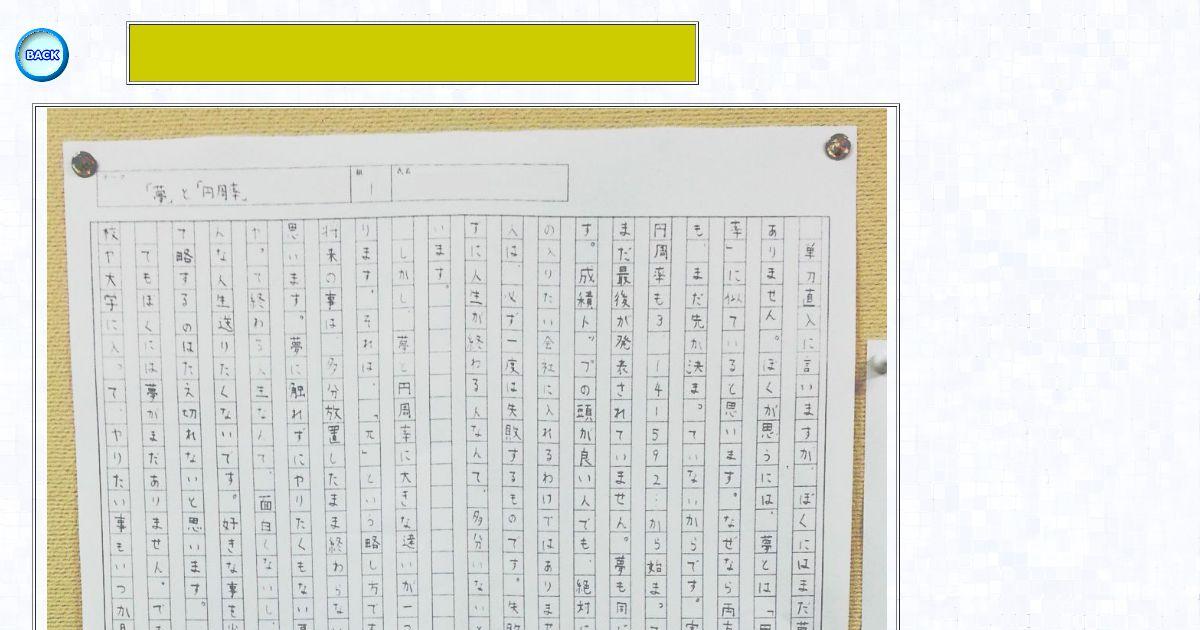 BACK
テーマ
「夢」と「円周率」
組
1
氏名
単刀直入に言いますが、ぼくにはまだ夢
ありません。ぼくが思うには、夢とは「円
率」に似ていると思います。なぜなら両方
も、まだ先が決まっていないからです。実
円周率も3.141592…から始まって
まだ最後が発表されていません。夢も同じ
す。成績トップの頭が良い人でも、絶対に
の入りたい会社に入れるわけではありませ
人は、必ず一度は失敗するものです。失敗
ずに人生が終わる人なんて、多分いないと
います。
しかし、夢と円周率に大きな違いが一つ
ります。それは、「π」という略し方です
将来の事は、多分放置したまま終わらない
思います。夢に触れずにやりたくもない事
やって終わる人生なんて、面白くないし、
んな人生送りたくないです。好きな事を
て略するのはたえ切れないと思います。
でもぼくには夢がまだありません。でも
校や大学に入って、やりたい事もいつか見